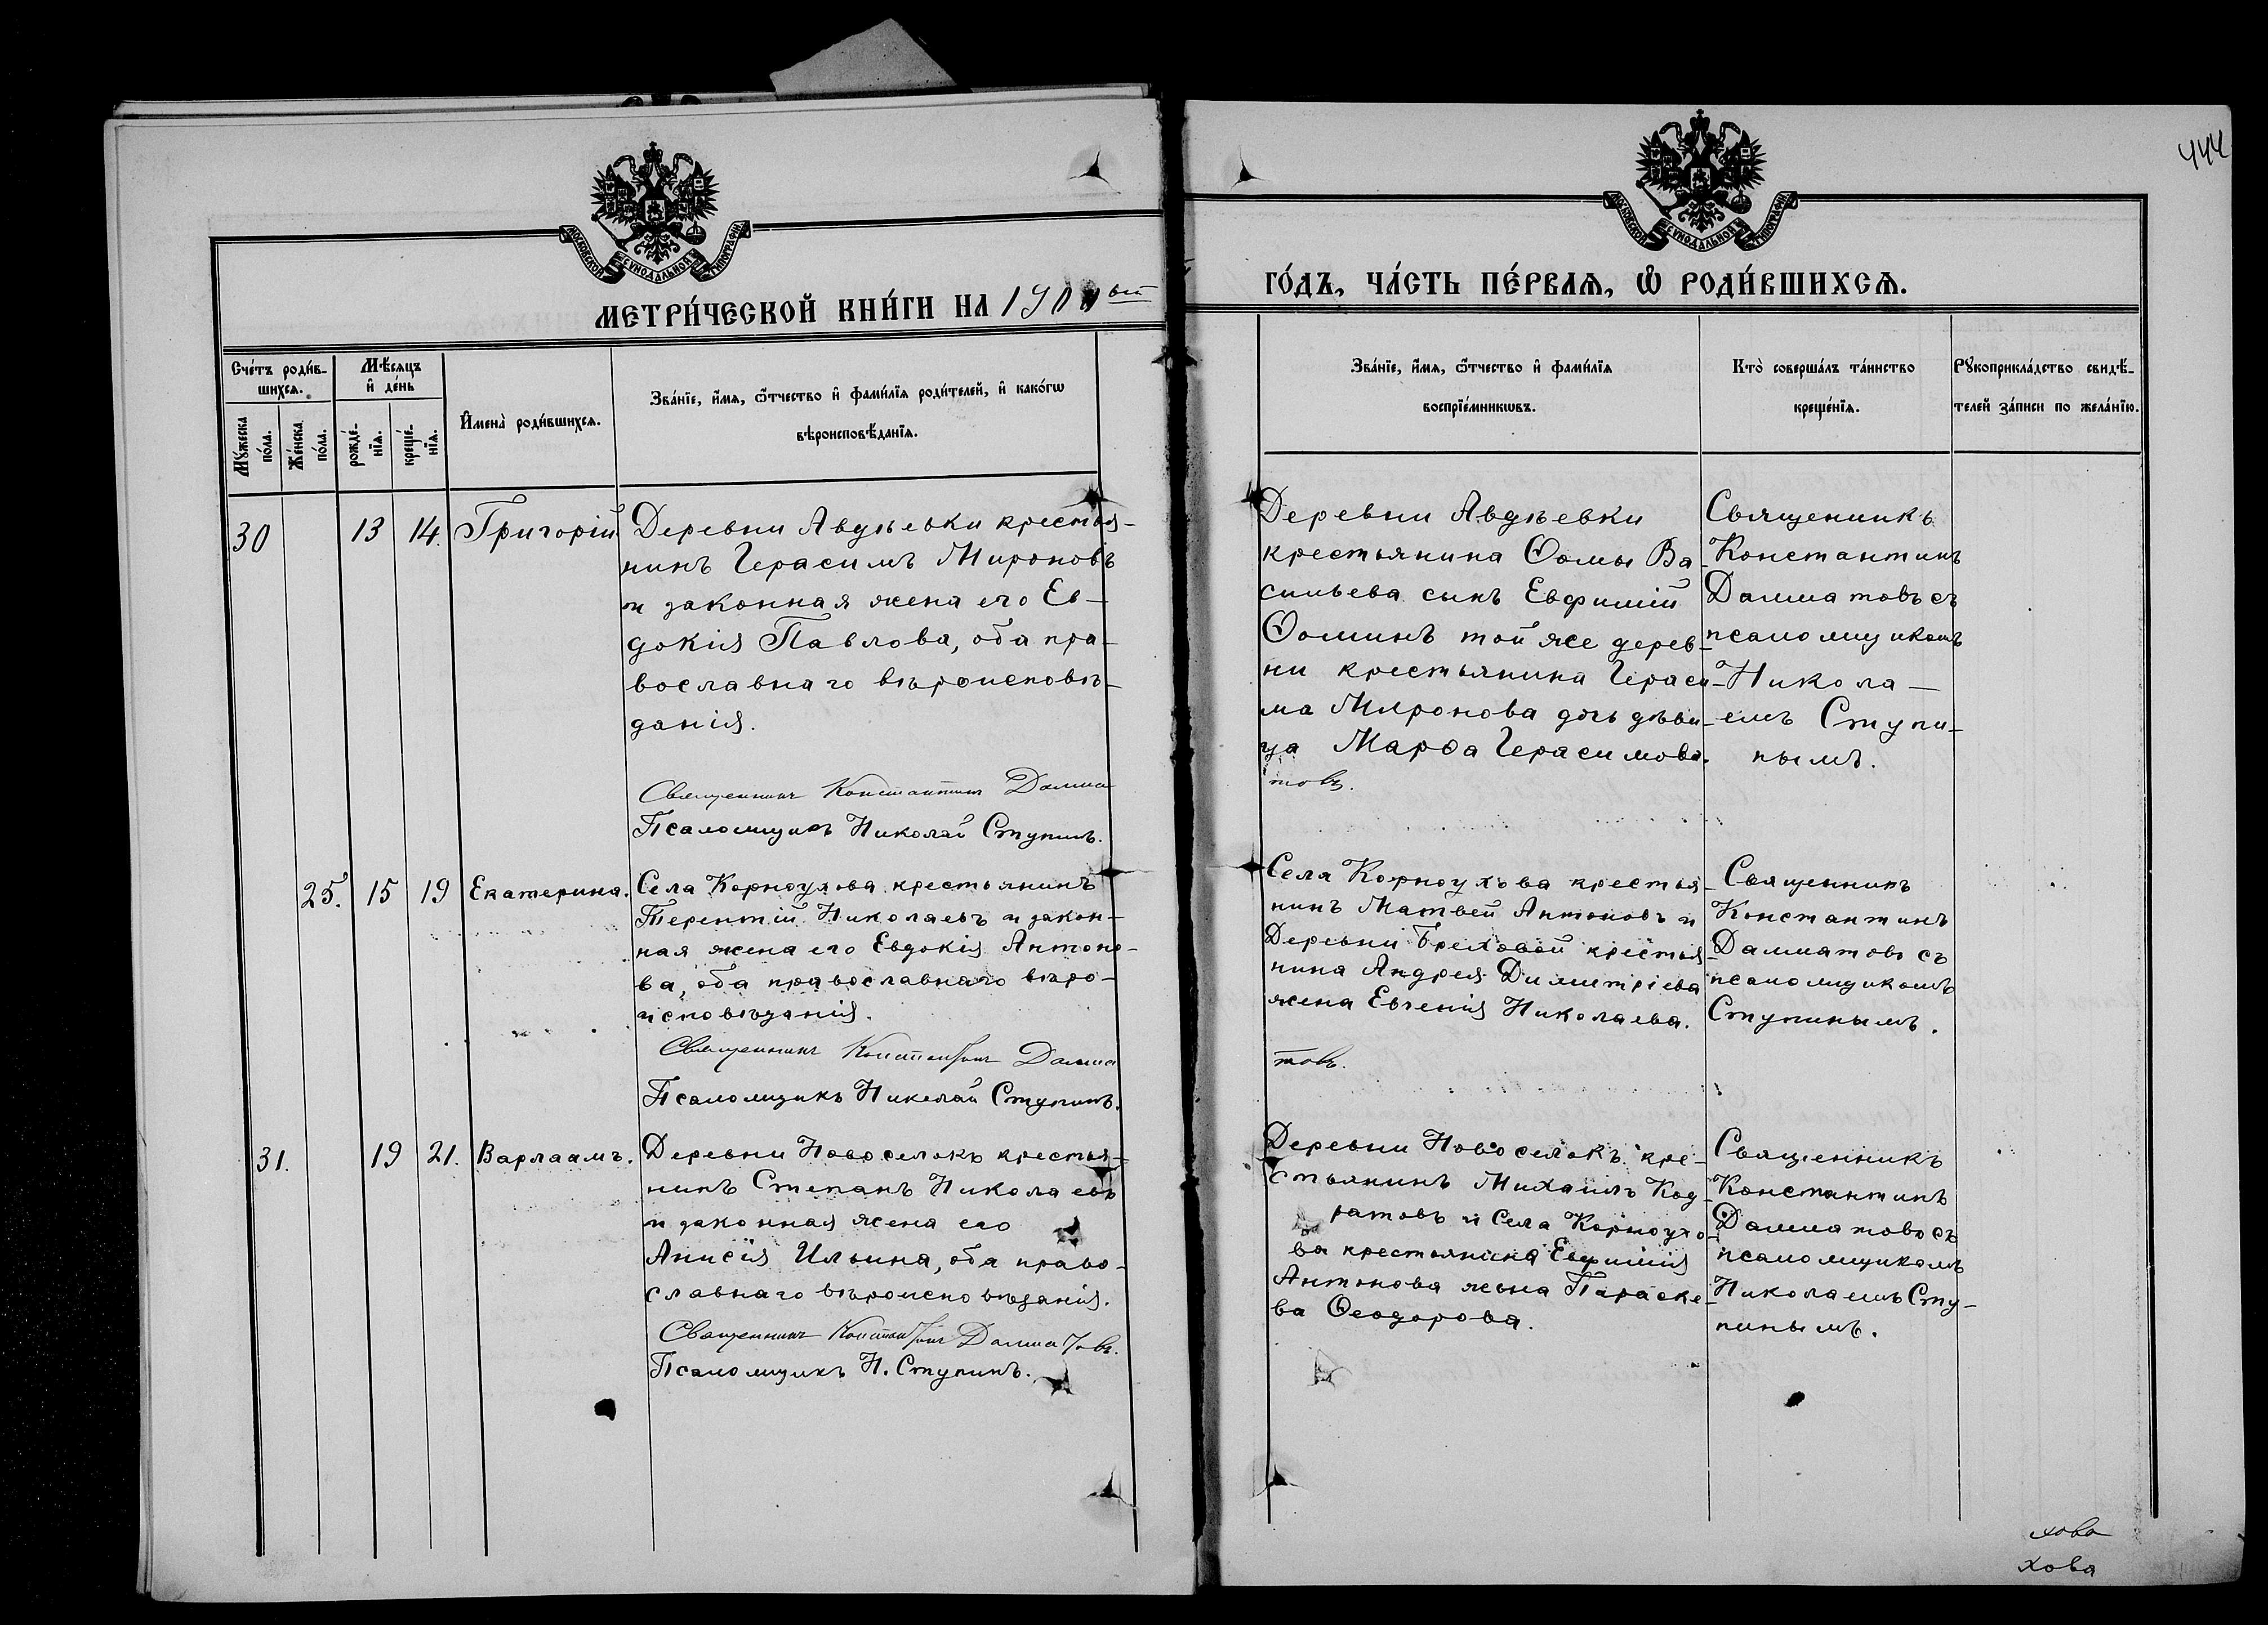 444
МОСКОВСКОЙ СѴНОДАЛЬНОЙ ТИПОГРАФІИ
МЕТРИ́ЧЕСКОЙ КНИ́ГИ НА
МОСКОВСКОЙ СѴНОДАЛЬНОЙ ТИПОГРАФІИ
ГО́ДЪ, ЧА́СТЬ ПЕ́РВАѦ, Ѽ РОДИ́ВШИХСѦ.
Сче́тъ роди́в-
шихсѧ.
Мꙋ́жеска
по́ла.
Же́нска
по́ла.
Мѣ́сѧцъ
и҆ де́нь
рожде́-
нїѧ.
креще́-
нїѧ.
И҆мена̀ роди́вшихсѧ.
Зва́нїе, и҆́мѧ, ѻ҆́тчество и҆ фами́лїѧ роди́телей, и҆ како́гѡ
вѣроисповѣ́данїѧ.
Зва́нїе, и҆́мѧ, ѻ҆́тчество и҆ фами́лїѧ
воспрїе́мникѡвъ.
Кто̀ соверша́лъ та́инство
креще́нїѧ.
Рꙋкоприкла́дство свидѣ́-
телей за́писи по жела́нїю.
30 13 14. Григорій
Деревни Авдѣевки крестья-
нинъ Герасимъ Мироновъ
и законная жена его Ев-
докія Павлова, оба пра-
вославнаго вѣроисповѣ-
данія.
Священникъ Константинъ Далма
товъ.
Псаломщикъ Николай Ступинъ.
Деревни Авдѣевки
крестьянина Ѳомы Ва-
сильева сынъ Евфимій
Ѳоминъ той же дерев-
ни крестьянина Гераси-
ма Миронова дочь дѣви-
ца Марѳа Герасимова.
Священникъ
Константинъ
Далматовъ съ
псаломщикомъ
Никола-
емъ Ступи-
нымъ.
25. 15 19 Екатерина.
Села Корноухова крестьянинъ
Терентій Николаевъ и закон-
ная жена его Евдокія Антоно-
ва, оба православнаго вѣро-
исповѣданія.
Священникъ Константинъ Далма
товъ.
Псаломщикъ Николай Ступинъ.
Села Корноухова крестья-
нинъ Матвей Антоновъ и
Деревни Бреховой крестья-
нина Андрея Димитріева
жена Евгенія Николаева.
Священникъ
Константинъ
Далматовъ съ
псаломщикомъ
Ступинымъ.
31. 19 21. Варлаамъ.
Деревни Новоселокъ крестья-
нинъ Степанъ Николаевъ
и законная жена его
Анисія Ильина, оба право-
славнаго вѣроисповѣданія.
Священникъ Константинъ Далматовъ.
Псаломщикъ Н. Ступинъ.
Деревни Новоселокъ кре-
стьянинъ Михаилъ Код-
ратовъ и Села Корноухо-
ва крестьянина Евфимія
Антонова жена Параске-
ва Ѳеодорова.
Священникъ
Константинъ
Далматовъ съ
псаломщикомъ
Николаемъ Сту-
пинымъ.
хова
хова